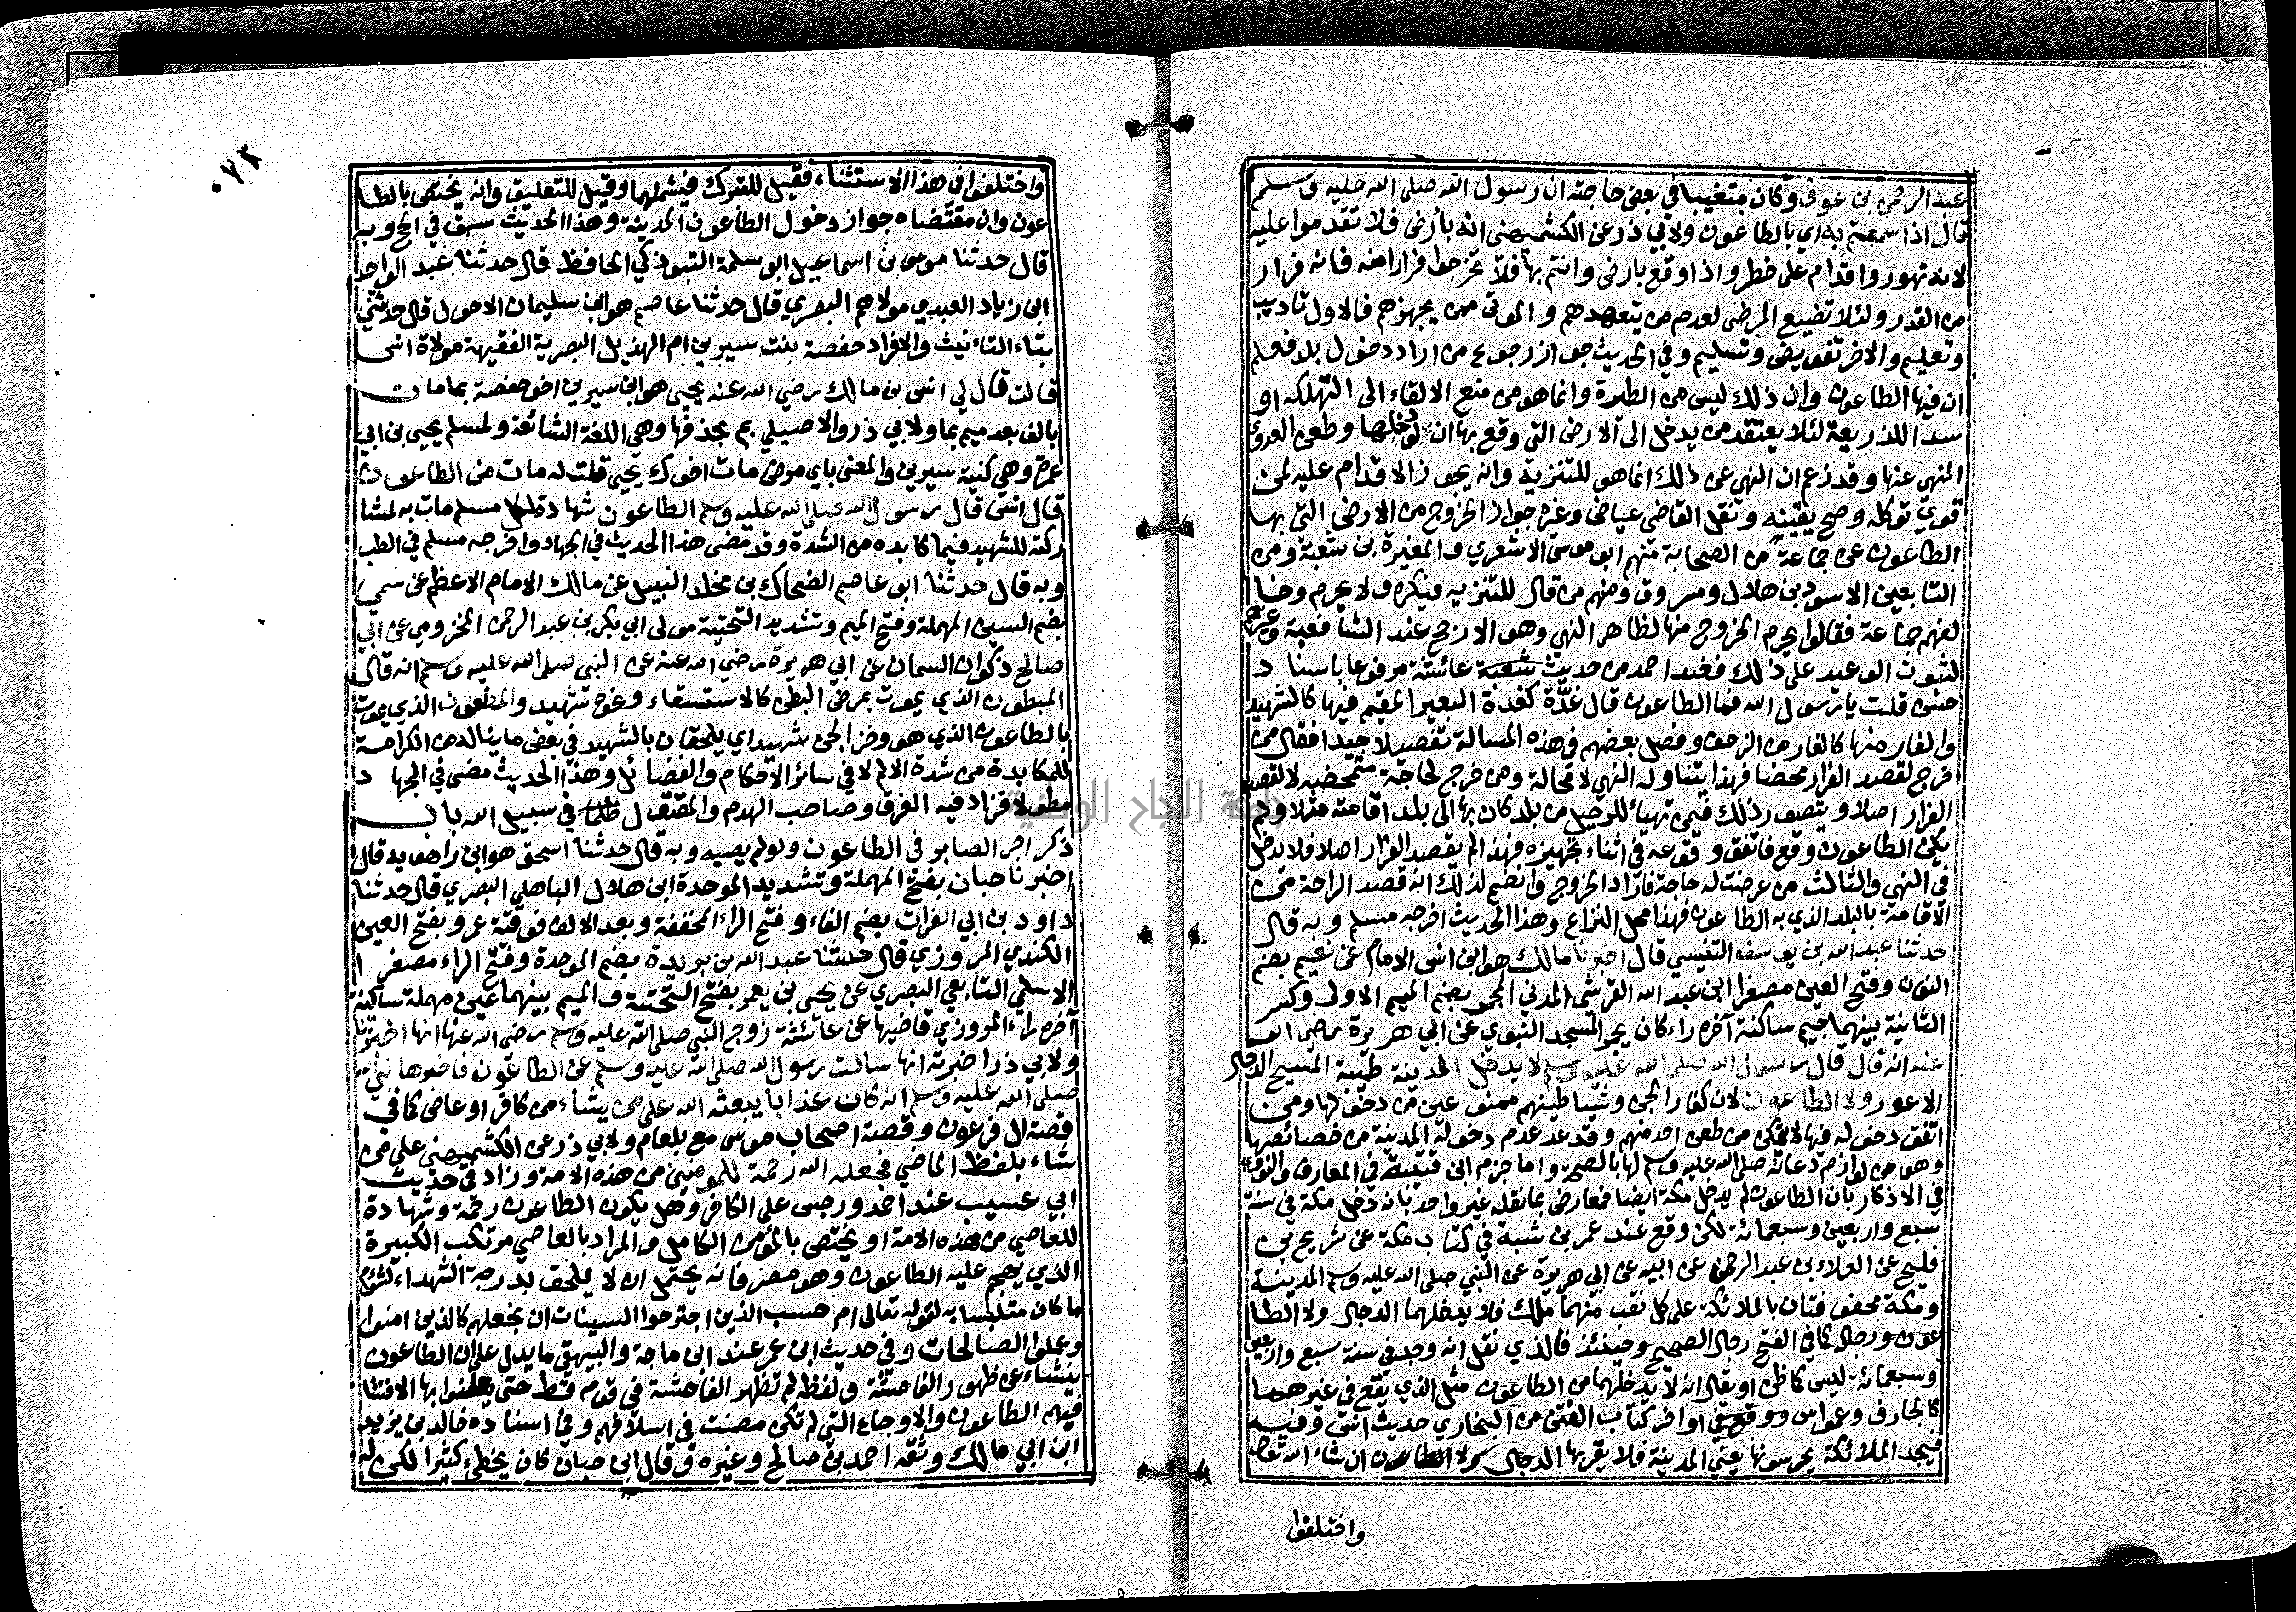 عبد الرحمن بن عوف وكان متغيبا في بعض حاجته ان رسول الله صلى الله عليه وسلم
قال اذا سمعتم به اي بالطاعون ولابي ذر عن الكشميهني انه بأرض فلا تقدموا عليه
لانه تهور واقدام على خطر واذا وقع بارض وانتم بها فلا تخرجوا فرارا منه فانه فرار
من القدر ولئلا تضيع المرضى لعدم من يتعهدهم والموتى ممن يجهزهم فالاول تاديب
وتعليم والاخر تفويض وتسليم وفي الحديث جواز رجوع من اراد دخول بلد فعلم
ان فيها الطاعون وان ذلك ليس من الطيرة وانما هو من منع الالقاء الى التهلكه او
سدا للذريعة لئلا يعتقد من يدخل الى الارض التي وقع بها ان لو دخلها وطعن العدوى
المنهي عنها وقد زعم ان النهي عن ذلك انما هو للتنزيه وانه يجوز الاقدام عليه لمن
قوي توكله وصح يقينه ونقل القاضي عياض وغيره جواز الخروج من الارض التي بها
الطاعون عن جماعة من الصحابة منهم ابو موسى الاشعري والمغيرة بن شعبة ومن
التابعين الاسود بن هلال ومسروق ومنهم من قال للتنزيه فيكره ولا يحرم وخا
لفهم جماعة فقالوا يحرم الخروج منها لظاهر النهي وهو الارجح عند الشافعية وغيرهم
لثبوت الوعيد على ذلك فعند احمد من حديث عائشة مرفوعا باسناد
حسن قلت يا رسول الله فما الطاعون قال غدّة كغدة البعير المقيم فيها كالشهيد
والفار منها كالفار من الزحف وفصل بعضهم في هذه المسالة تفصيلا جيدا فقال من
خرج لقصد الفرار محضا فهذا يتناوله النهي لا محالة ومن خرج لحاجة متمحضة لا لقصد
الفرار اصلا ويتصور ذلك فيمن تهيأ للرحيل من بلد كان بها الى بلد اقامته مثلا ولم
يكن الطاعون وقع فاتفق وقوعه في اثناء تجهيزه فهذا لم يقصد الفرار اصلا فلا يدخل
في النهي والثالث من عرضت له حاجة فاراد الخروج وانضم لذلك انه قصد الراحة من
الاقامة بالبلد الذي به الطاعون فهذا محل النزاع وهذا الحديث اخرجه مسلم وبه قال
حدثنا عبد الله بن يوسف التنيسي قال اخبرنا مالك هو ابن انس الامام عن نعيم بضم
النون وفتح العين مصغرا ابن عبد الله القرشي المدني المجمر بضم الميم الاولى وكسر
الثانية بينهما جيم ساكنة آخره راء كان يجمر المسجد النبوي عن ابي هريرة رضي الله
عنه انه قال قال رسول الله صلى الله عليه وسلم لا يدخل المدينة طيبة المسيح الدجال
الاعور ولا الطاعون لان كفار الجن وشياطينهم ممنوعين من دخولها ومن
اتفق دخوله فيها لا يتمكن من طعن احد منهم وقد عد عدم دخوله المدينة من خصائصها
وهو من لوازم دعائه صلى الله عليه وسلم لها بالصحة واما جزم ابن قتيبة في المعارف والنووي
في الاذكار بان الطاعون لم يدخل مكة ايضا فمعارض بما نقله غير واحد بانه دخل مكة في سنة
سبع واربعين وسبعمائة لكن وقع عند عمر بن شبة في كتاب مكة عن شريح بن
فليح عن العلاء بن عبد الرحمن عن ابيه عن ابي هريرة عن النبي صلى الله عليه وسلم المدينة
ومكة محفوفتان بالملائكة على كل نقب منهما ملك فلا يدخلهما الدجال ولا الطا
عون ورجاله كما في الفتح رجال الصحيح وحينئذ فالذي نقل انه وجد في سنة سبع واربعين
وسبعمائة ليس كما ظن او يقال انه لا يدخلهما من الطاعون مثل الذي يقع في غيرهما
كالجارف وعمواس ووقع في اواخر كتاب الفتن من البخاري حديث انس وفيه
فيجد الملائكة يحرسونها يعني المدينة فلا يقربها الدجال ولا الطاعون ان شاء الله تعالى
واختلفوا
٠٧٣
واختلفوا في هذا الاستثناء فقيل للتبرك فيشملهما وقيل للتعليق وانه يختص بالطا
عون وان مقتضاه جواز دخول الطاعون المدينة وهذا الحديث سبق في الحج وبه
قال حدثنا موسى بن اسماعيل ابو سلمة التبوذكي الحافظ قال حدثنا عبد الواحد
ابن زياد العبدي مولاهم البصري قال حدثنا عاصم هو ابن سليمان الاحول قال حدثتني
بتاء التانيث والافراد حفصة بنت سيرين ام الهذيل البصرية الفقيهة مولاة انس
قالت قال لي انس بن مالك رضي الله عنه يحيى هو ابن سيرين اخو حفصة بما مات
بالف بعد ميم بما ولابي ذر والاصيلي بم بحذفها وهي اللغة الشائعة ولمسلم يحيى بن ابي
عمرة وهي كنية سيرين والمعنى باي مرض مات اخوك يحيى قلت له مات من الطاعون
قال انس قال رسول الله صلى الله عليه وسلم الطاعون شهادة لكل مسلم مات به لمشا
ركته للشهيد فيما كابده من الشدة وقد مضى هذا الحديث في الجهاد واخرجه مسلم في الطب
وبه قال حدثنا ابو عاصم الضحاك بن مخلد النبيل عن مالك الامام الاعظم عن سمي
بضم السين المهملة وفتح الميم وتشديد التحتية مولى ابي بكر بن عبد الرحمن المخزومي عن ابي
صالح ذكوان السمان عن ابي هريرة رضي الله عنه عن النبي صلى الله عليه وسلم انه قال
المبطون الذي يموت بمرض البطن كالاستسقاء ونحوه شهيد والمطعون الذي يموت
بالطاعون الذي هو وخز الجن شهيد اي يلحقان بالشهيد في بعض ما يناله من الكرامة
للمكابدة من شدة الالم لا في سائر الاحكام والفضائل وهذا الحديث مضى في الجهاد
مطولا فزاد فيه الغرق وصاحب الهدم والمقتول في سبيل الله باب
ذكر اجر الصابر في الطاعون ولو لم يصبه وبه قال حدثنا اسحق هو ابن راهويه قال
اخبرنا حبان بفتح المهملة وتشديد الموحدة ابن هلال الباهلي البصري قال حدثنا
داود بن ابي الفرات بضم الفاء وفتح الراء المخففة وبعد الالف فوقية عمرو بفتح العين
الكندي المروزي قال حدثنا عبد الله بن بريدة بضم الموحدة وفتح الراء مصغرا
الاسلمي التابعي البصري عن يحيى بن يعمر بفتح التحتية والميم بينهما عين مهملة ساكنة
آخره راء المروزي قاضيها عن عائشة زوج النبي صلى الله عليه وسلم رضي الله عنها انها اخبرتنا
ولابي ذر اخبرته انها سالت رسول الله صلى الله عليه وسلم عن الطاعون فاخبرها نبي الله
صلى الله عليه وسلم انه كان عذابا يبعثه الله على من يشاء من كافر او عاص كما في
قصة ال فرعون وقصة اصحاب موسى مع بلعام ولابي ذر عن الكشميهني على من
شاء بلفظ الماضي فجعله الله رحمة للمومنين من هذه الامة وزاد في حديث
ابي عسيب عند احمد ورجس على الكافر وهل يكون الطاعون رحمة وشهادة
للعاصي من هذه الامة او يختص بالمؤمن الكامل والمراد بالعاصي مرتكب الكبيرة
الذي يهجم عليه الطاعون وهو مصر فانه يحتمل ان لا يلحق بدرجة الشهداء لشؤم
ما كان متلبسا به لقوله تعالى ام حسب الذين اجترحوا السيئات ان نجعلهم كالذين امنوا
وعملوا الصالحات وفي حديث ابن عمر عند ابن ماجة والبيهقي ما يدل على ان الطاعون
ينشاء عن ظهور الفاحشة ولفظه لم تظهر الفاحشة في قوم قط حتى يعلنوا بها الا فشا
فيهم الطاعون والاوجاع التي لم تكن مضت في اسلافهم وفي اسناده خالد بن يزيد
ابن ابي مالك وثقه احمد بن صالح وغيره وقال ابن حبان كان يخطئ كثيرا لكن له